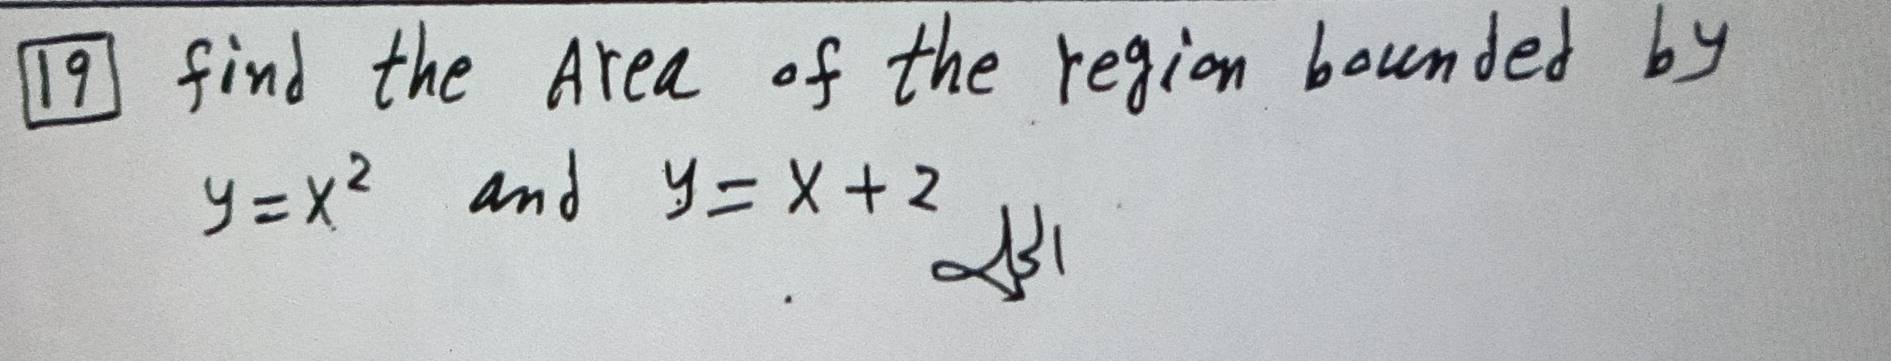 19 find the Area of the region bounded by
y=x² and y=x+2